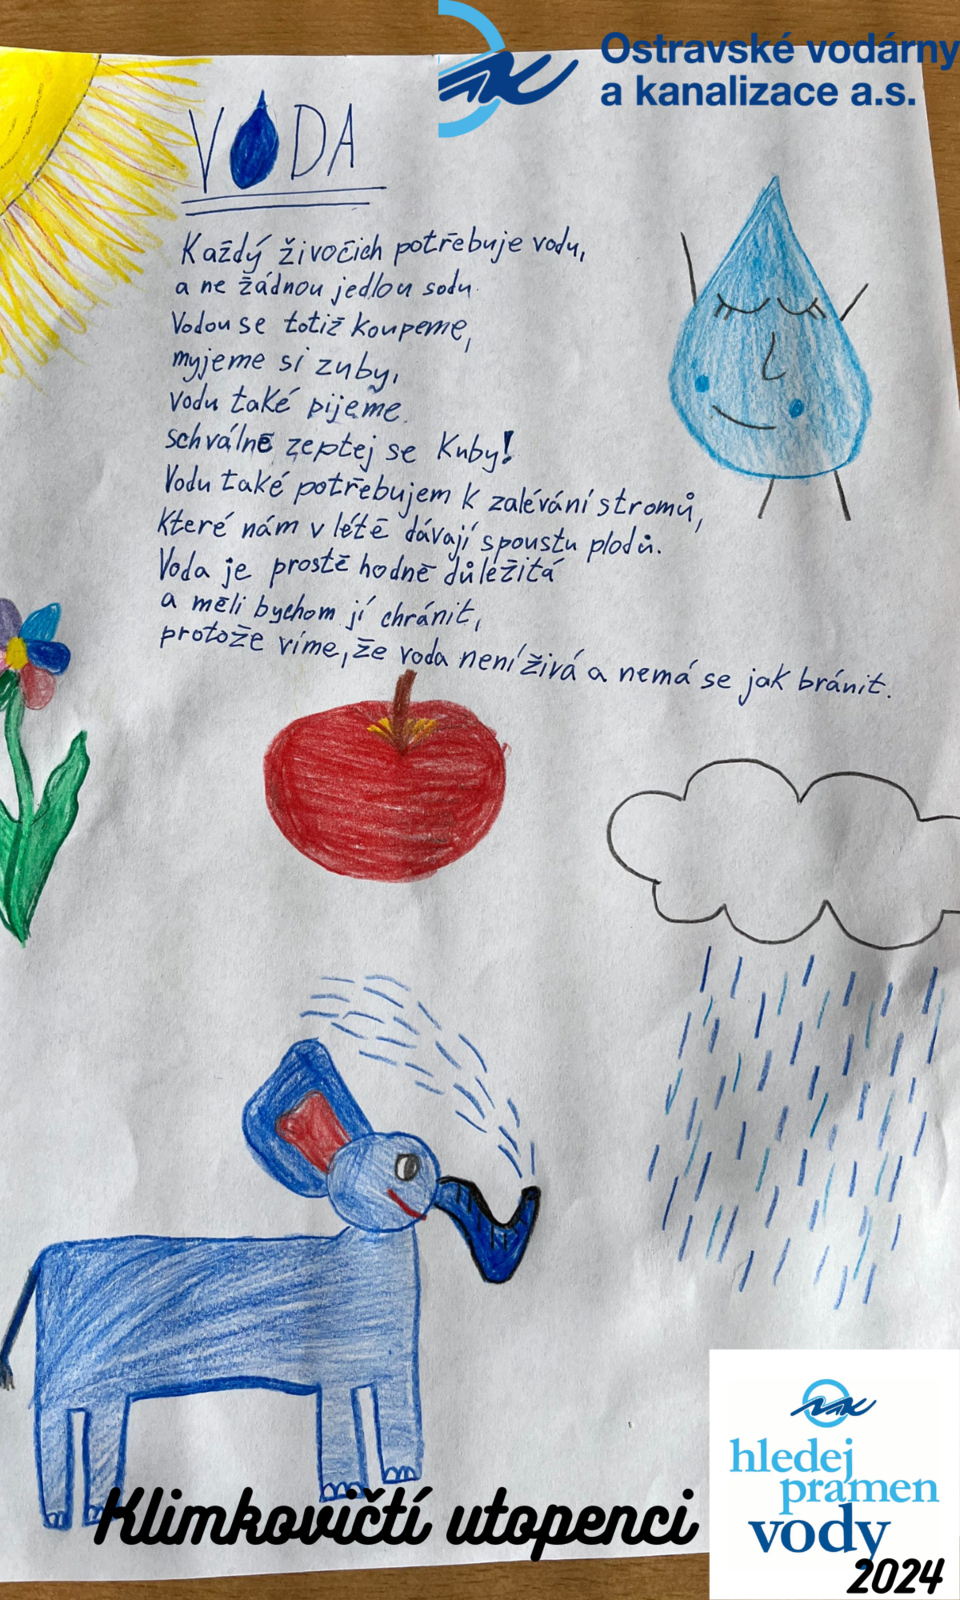 Ostravské vodárny
a kanalizace a.s.
VODA
Každý živočich potřebuje vodu,
a ne žádnou jedlou sodu.
Vodou se totiž koupeme,
myjeme si zuby,
vodu také pijeme.
schválně zeptej se Kuby!
Vodu také potřebujem k zalévání stromů,
které nám v létě dávají spoustu plodů.
Voda je prostě hodně důležitá
a měli bychom jí chránit,
protože víme, že voda není živá a nemá se jak bránit.
Klimkovičtí utopenci
hledej
pramen
vody
2024